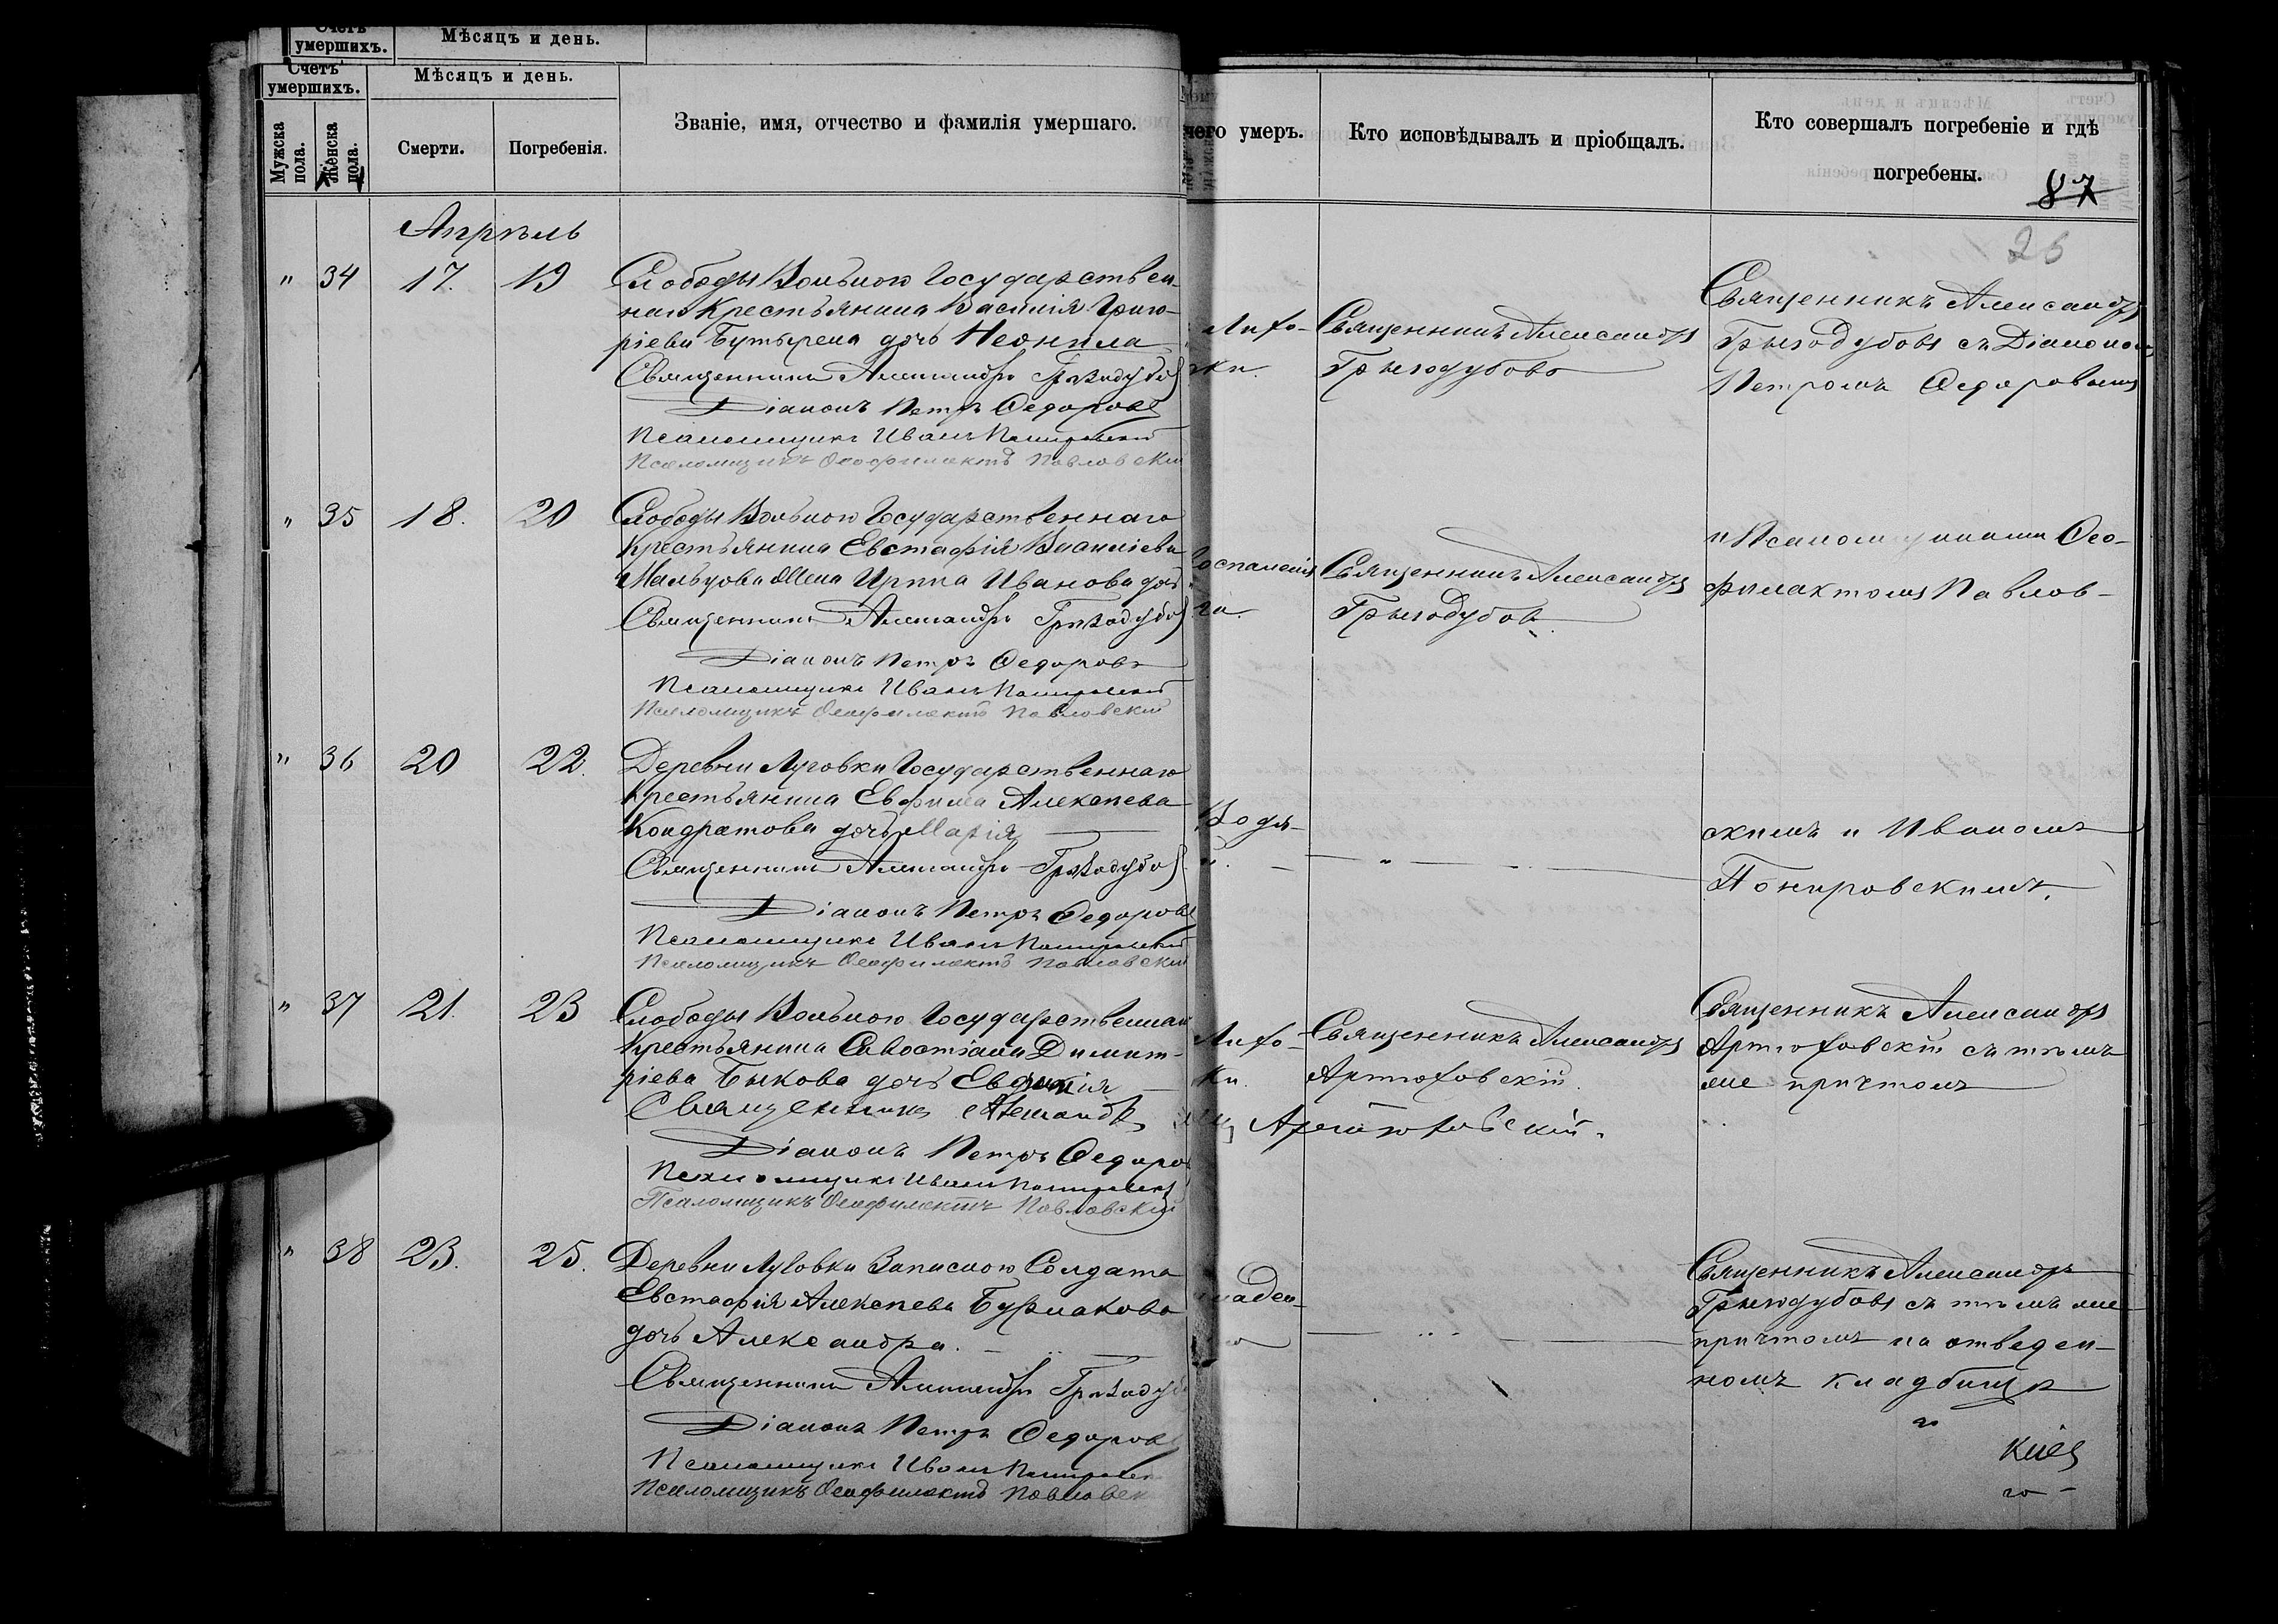 Счетъ умершихъ.
Мѣсяцъ и день.
Счетъ умершихъ.
Мѣсяцъ и день.
Мужска пола.
Женска пола.
Смерти.
Погребенія.
Званіе, имя, отчество и фамилія умершаго.
чего умеръ.
Кто исповѣдывалъ и пріобщалъ.
Кто совершалъ погребеніе и гдѣ
погребены.
87
26
Апрѣль
" 34 17. 19
Слободы Вольною Государствен-
наго Крестьянина Василія Григо-
ріева Бутырева дочь Неонила
Священникъ Александръ Гризодубов
Діаконъ Петръ Ѳедоровъ
Псаломщикъ Иванъ Понировскій
Псаломщикъ Ѳеофилактъ Павловскій
Лихо-
ки.
Священникъ Александръ
Гризодубовъ
Священникъ Александръ
Гризодубовъ съ Діакономъ
Петромъ Ѳедоровымъ
" 35 18. 20
Слободы Вольною Государственнаго
Крестьянина Евстафія Василіева
Мальцова жена Ирина Иванова дочь
Священникъ Александръ Гризодубов
Діаконъ Петръ Ѳедоровъ
Псаломщикъ Иванъ Понировскій
Псаломщикъ Ѳеофилактъ Павловскій
оспаленія
Священникъ Александръ
Гризодубовъ
и Псаломщиками Ѳео-
филактомъ Павлов-
" 36 20 22.
Деревни Луговки Государственнаго
Крестьянина Евфима Алексѣева
Кондратова дочь Марія
Священникъ Александръ Гризодубов
Діаконъ Петръ Ѳедоровъ
Псаломщикъ Иванъ Понировскій
Псаломщикъ Ѳеофилактъ Павловскій
Водя-
скимъ и Иваномъ
Понировскимъ.
" 37 21. 23
Слободы Вольною Государственнаго
Крестьянина Севостіана Димит-
ріева Быкова дочь Евдокія
Священникъ Александръ Артюховскій.
Діаконъ Петръ Ѳедоров
Псаломщикъ Иванъ Понировскій
Псаломщикъ Ѳеофилактъ Павловскій
Лихо-
ки.
Священникъ Александръ
Артюховскій.
Священникъ Александръ
Артюховскій съ тѣмъ
же причтомъ
" 38 23. 25.
Деревни Луговки Запасною Солдата
Евстафія Алексѣева Бурмакова
дочь Александра.
Священникъ Александръ Гризодуб
Діаконъ Петръ Ѳедоров
Псаломщикъ Иванъ Понировск
Псаломщикъ Ѳеофилактъ Павловск
ладен-
Священникъ Александръ
Гризодубовъ съ тѣмъ же
причтомъ на отведен-
номъ кладбищѣ